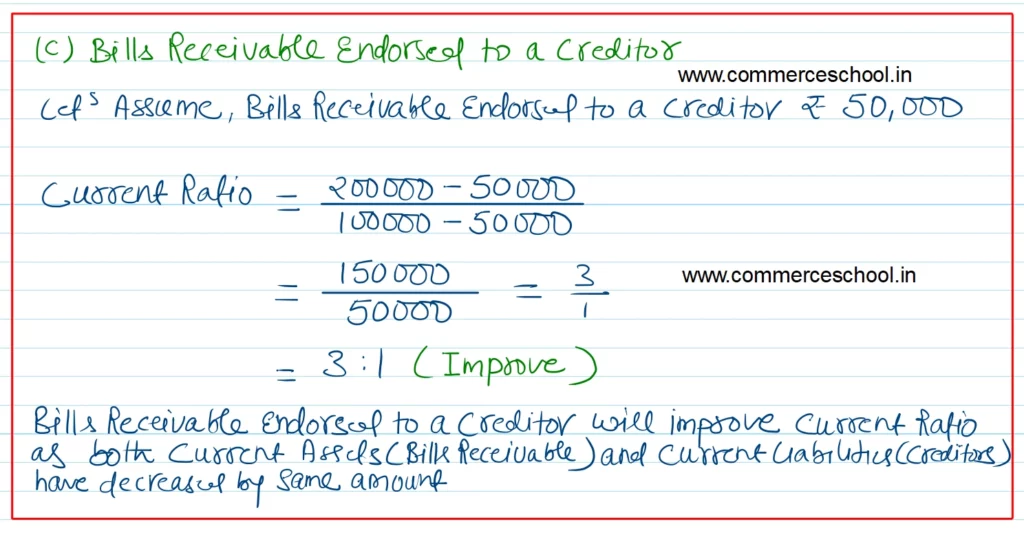 (C) Bills Receivable Endorsed to a Creditor
www.commerceschool.in
Let's Assume, Bills Receivable Endorsed to a Creditor ₹ 50,000
Current Ratio = 200000 - 50000
100000 - 50000
= 150000 = 3
50000 1
www.commerceschool.in
= 3:1 (Improve)
Bills Receivable Endorsed to a Creditor will improve Current Ratio
as both Current Assets (Bills Receivable) and Current Liabilities (Creditors)
have decreased by same amount